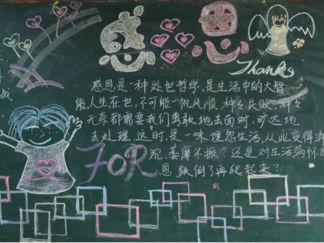 感恩
Thanks
感恩是一种处世哲学,是生活中的大智
人生在世,不可能一帆风顺,种种失败、种种
无奈都需要我们勇敢地去面对,旷达地
去处理。这时,是一味埋怨生活,从此变得消
沉、萎靡不振?还是对生活满怀
恩,跌倒了再爬起来?
FOR